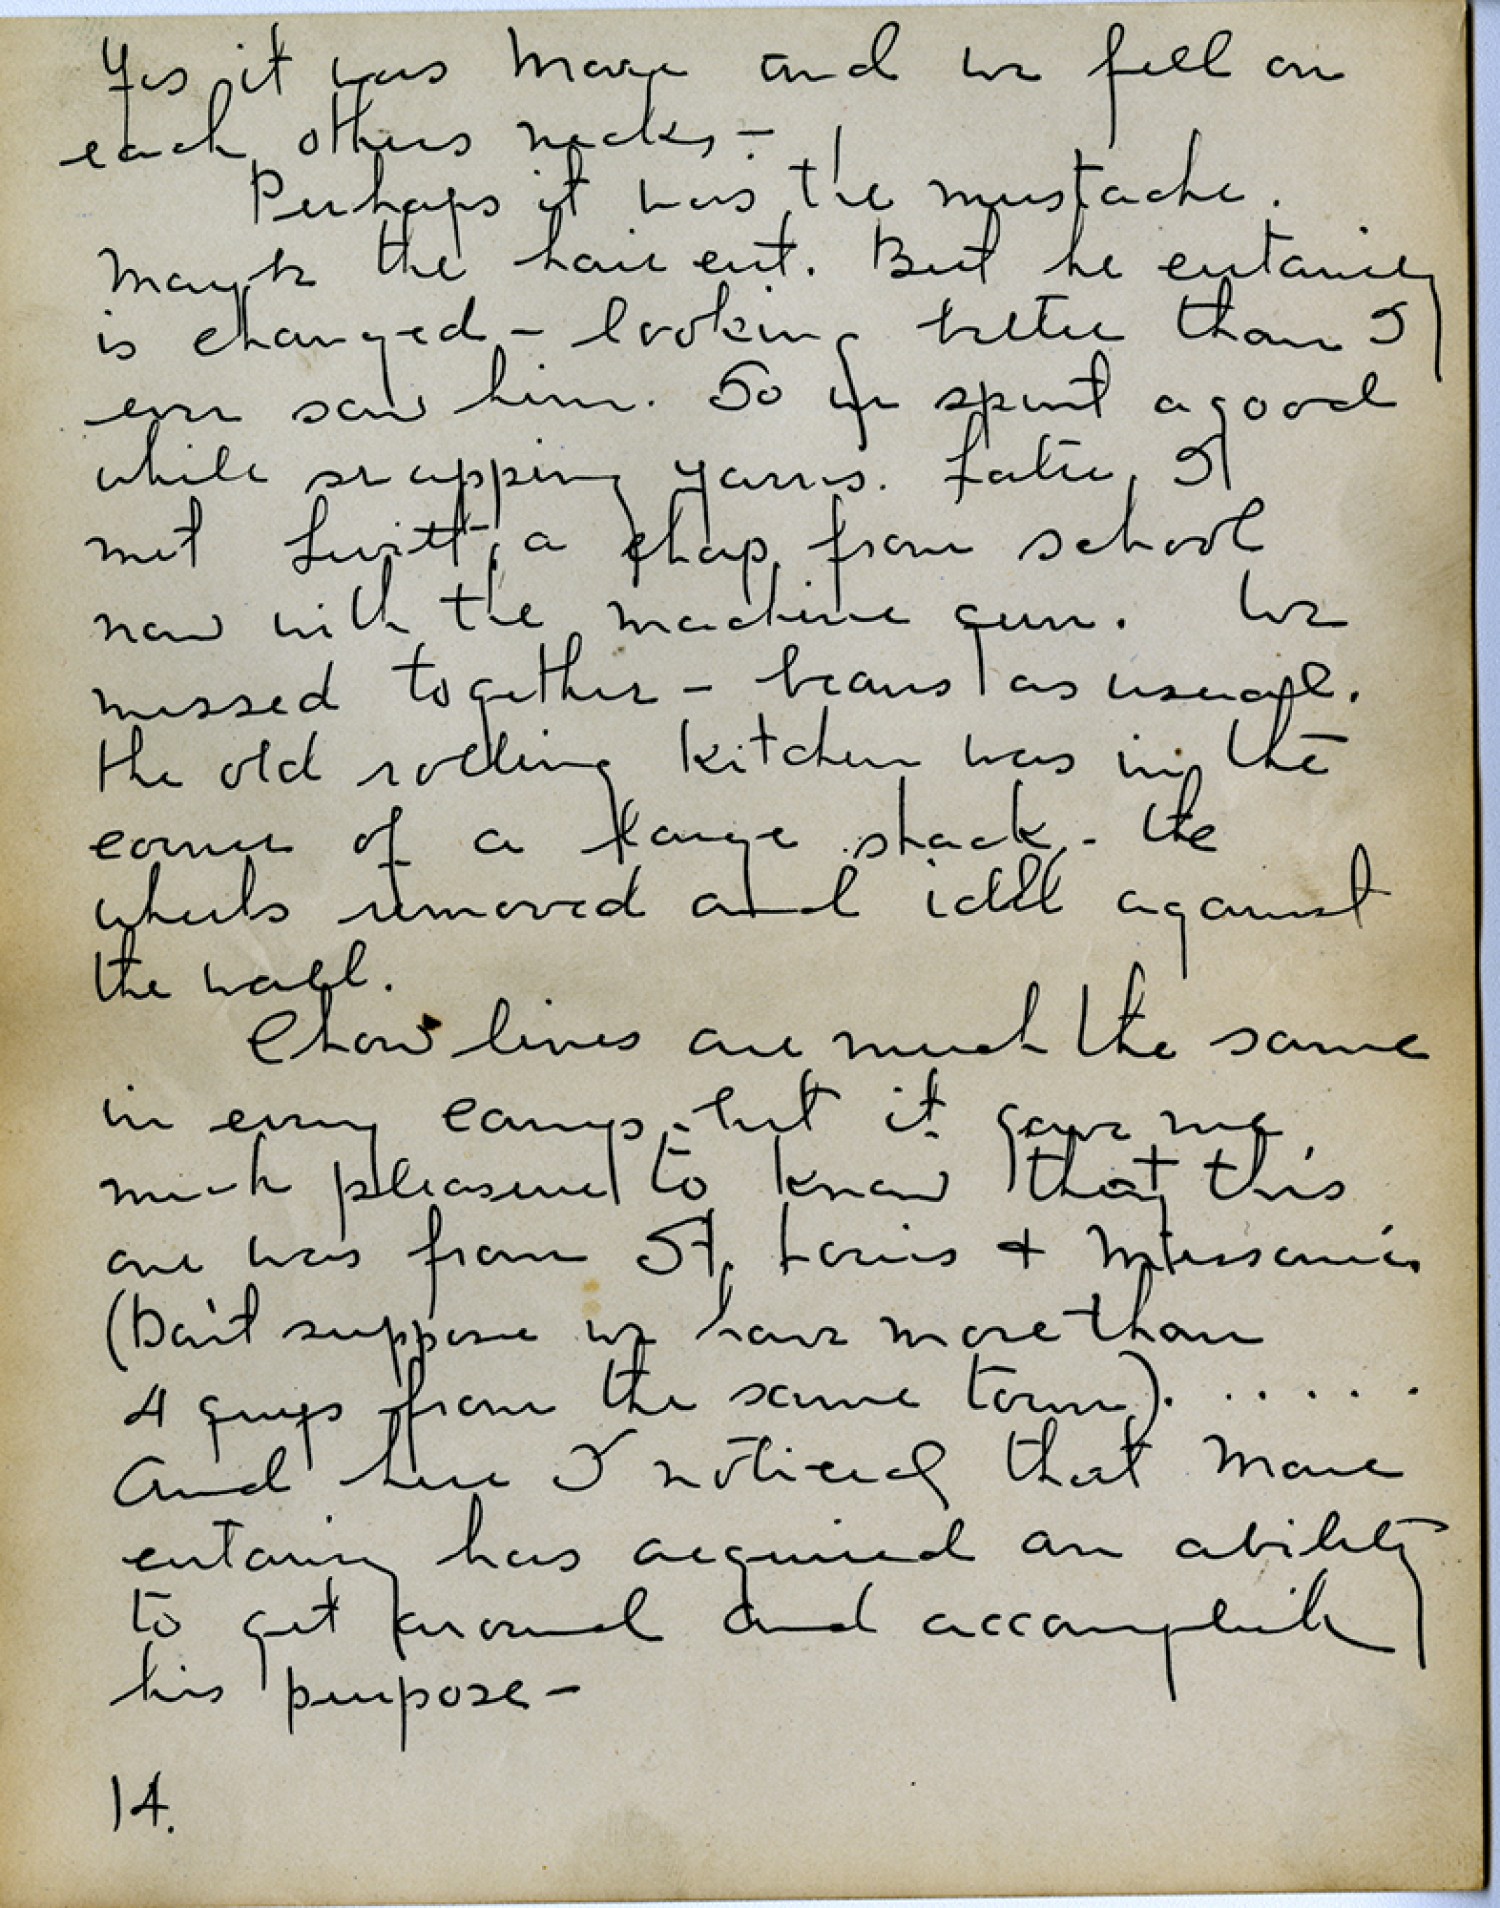 Yes it was More and we fell on
each others necks -
Perhaps it was the mustache.
Maybe the hair cut. But he certainly
is changed - looking better than I
ever saw him. So we spent a good
while swapping yarns. Later, I
met Levitt, a chap from school
now with the machine gun. We
messed together - beans as usual.
The old rolling kitchen was in the
corner of a large shack - the
wheels removed and idle against
the wall.
Chow lines are much the same
in every camp - but it gave me
much pleasure to know that this
one was from St. Louis & Missouri.
(Don't suppose we have more than
4 guys from the same town). . . . . .
And here I noticed that More
certainly has acquired an ability
to get around and accomplish
his purpose -
14.